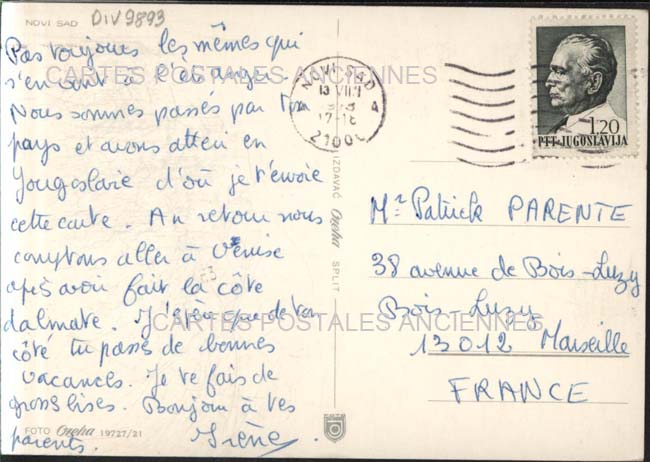 NOVI SAD
DIV9893
Pas toujours les mêmes qui
s'en vont à l'étranger.
Nous sommes passés par ton
pays et avons atteri en
Yougoslavie d'où je t'envoie
cette carte. Au retour nous
comptons aller à Venise
après avoir fait la côte
dalmate. J'espère que de ton
côté tu passes de bonnes
vacances. Je te fais de
grosses bises. Bonjour à tes
parents. Irène
FOTO Ozeha 19727/21
IZDAVAČ Ozeha SPLIT
NOVI SAD
13 VIII
17-18
21000
A
1.20
PTT JUGOSLAVIJA
Mr Patrick PARENTE
38 avenue de Bois-Luzy
Bois-Luzy
13012 Marseille
FRANCE
CARTES POSTALES ANCIENNES
CARTES POSTALES ANCIENNES